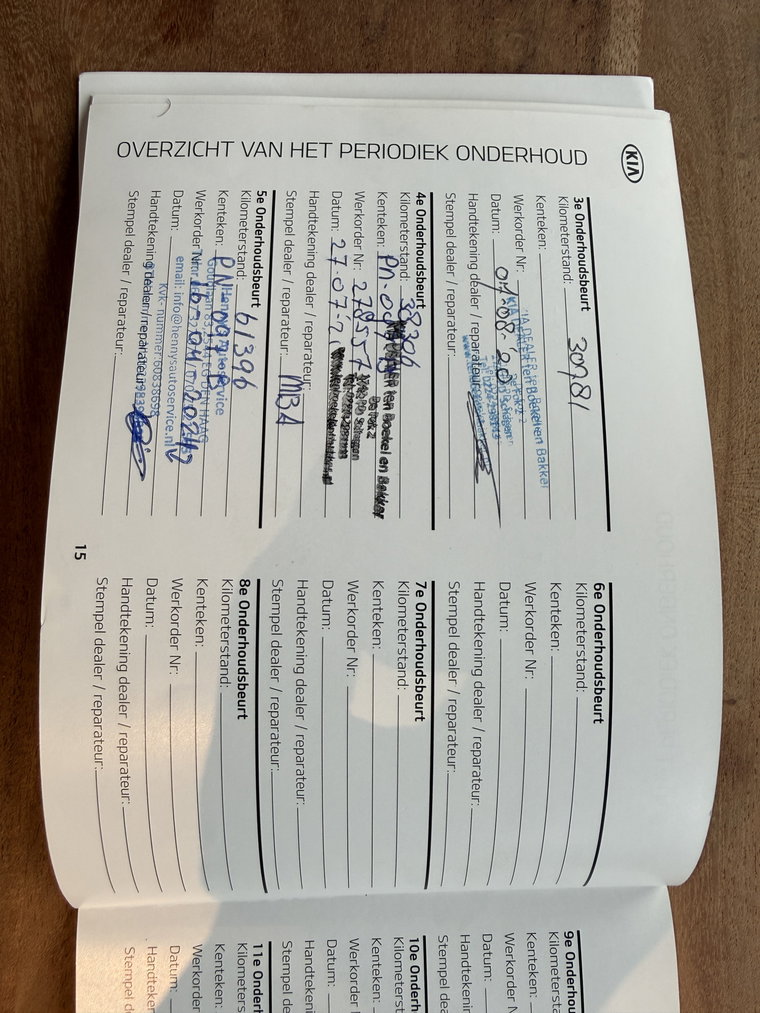 KIA
OVERZICHT VAN HET PERIODIEK ONDERHOUD
3e Onderhoudsbeurt
Kilometerstand: 30981
Kenteken:
Werkorder Nr:
Datum: 04-08-20
Handtekening dealer / reparateur:
Stempel dealer / reparateur:
4e Onderhoudsbeurt
Kilometerstand: 38306
Kenteken: PN-0
Werkorder Nr: 278557
Datum: 27-07-21
Handtekening dealer / reparateur:
Stempel dealer / reparateur: MBA
ten Boekel en Bakker
De Tok 2
Schagen
5e Onderhoudsbeurt
Kilometerstand: 61396
Kenteken: PN-097-B
Werkorder Nr:
Datum:
Handtekening dealer / reparateur:
Stempel dealer / reparateur:
Henny's Autoservice
DEN HAAG
email: info@hennysautoservice.nl
KvK-nummer:
6e Onderhoudsbeurt
Kilometerstand:
Kenteken:
Werkorder Nr:
Datum:
Handtekening dealer / reparateur:
Stempel dealer / reparateur:
7e Onderhoudsbeurt
Kilometerstand:
Kenteken:
Werkorder Nr:
Datum:
Handtekening dealer / reparateur:
Stempel dealer / reparateur:
8e Onderhoudsbeurt
Kilometerstand:
Kenteken:
Werkorder Nr:
Datum:
Handtekening dealer / reparateur:
Stempel dealer / reparateur:
15
9e Onderhou
Kilometersta
Kenteken:
Werkorder N
Datum:
Handtekenin
Stempel dea
10e Onderh
Kilometerst
Kenteken:
Werkorder
Datum:
Handtekeni
Stempel de
11e Onderh
Kilometers
Kenteken:
Werkorder
Datum:
Handteken
Stempel d